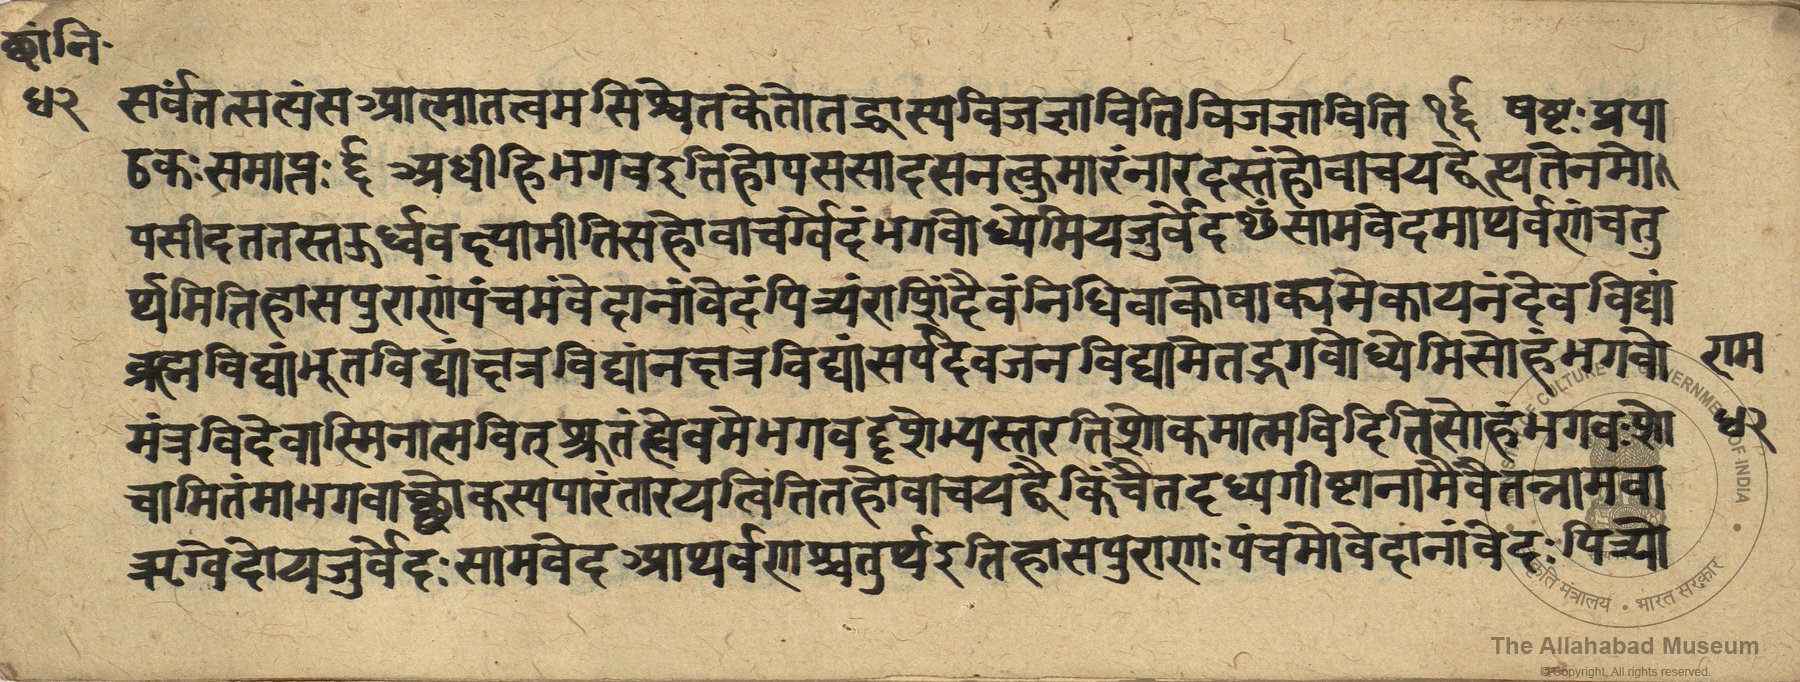 छांनि॰
५२
सर्वंतत्सत्यंसआत्मातत्वमसिश्वेतकेतोतद्धास्यविजज्ञावितिविजज्ञाविति १६ षष्टःप्रपा
ठकःसमाप्तः ६ अधीहिभगवइतिहोपससादसनत्कुमारंनारदस्तंहोवाचयद्वेत्थतेनमो
पसीदततस्तऊर्ध्वंवक्ष्यामीतिसहोवाचर्ग्वेदंभगवोध्येमियजुर्वेदꣳसामवेदमाथर्वणंचतु
र्थमितिहासपुराणंपंचमंवेदानांवेदंपित्र्यंराशिंदैवंनिधिंवाकोवाक्यमेकायनंदेवविद्यां
ब्रह्मविद्यांभूतविद्यांक्षत्रविद्यांनक्षत्रविद्यांसर्पदेवजनविद्यामेतद्भगवोध्येमिसोहंभगवो
राम
मंत्रविदेवास्मिनात्मवित्श्रुतंह्येवमेभगवद्दृशेभ्यस्तरतिशोकमात्मविदितिसोहंभगवःशो
५२
चामितंमाभगवाञ्छोकस्यपारंतारयत्वितितहोवाचयद्वैकिंचैतदध्यगीष्टानामैवैतन्नामवा
ऋग्वेदोयजुर्वेदःसामवेदआथर्वणश्चतुर्थइतिहासपुराणःपंचमोवेदानांवेदःपित्र्यो
GOVERNMENT OF INDIA
संस्कृति मंत्रालय • भारत सरकार
The Allahabad Museum
© Copyright, All rights reserved.